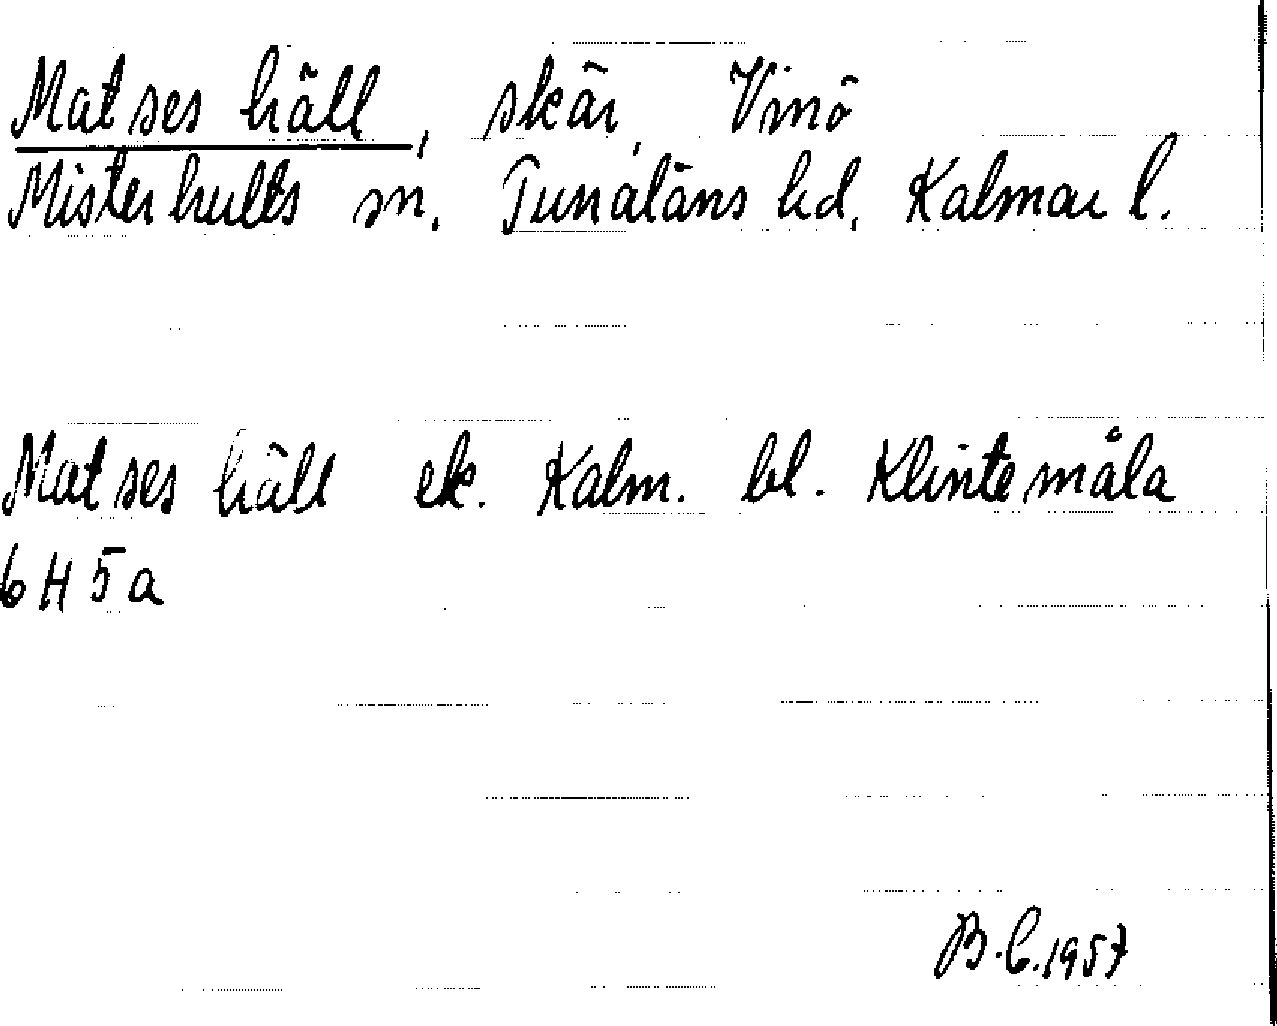 Matses häll, skär, Vinö
Misterhults sn. Tunaläns hd, Kalmar l.
Matses häll ek. Kalm. bl. Klintemåla
6H5a
B.C.1957